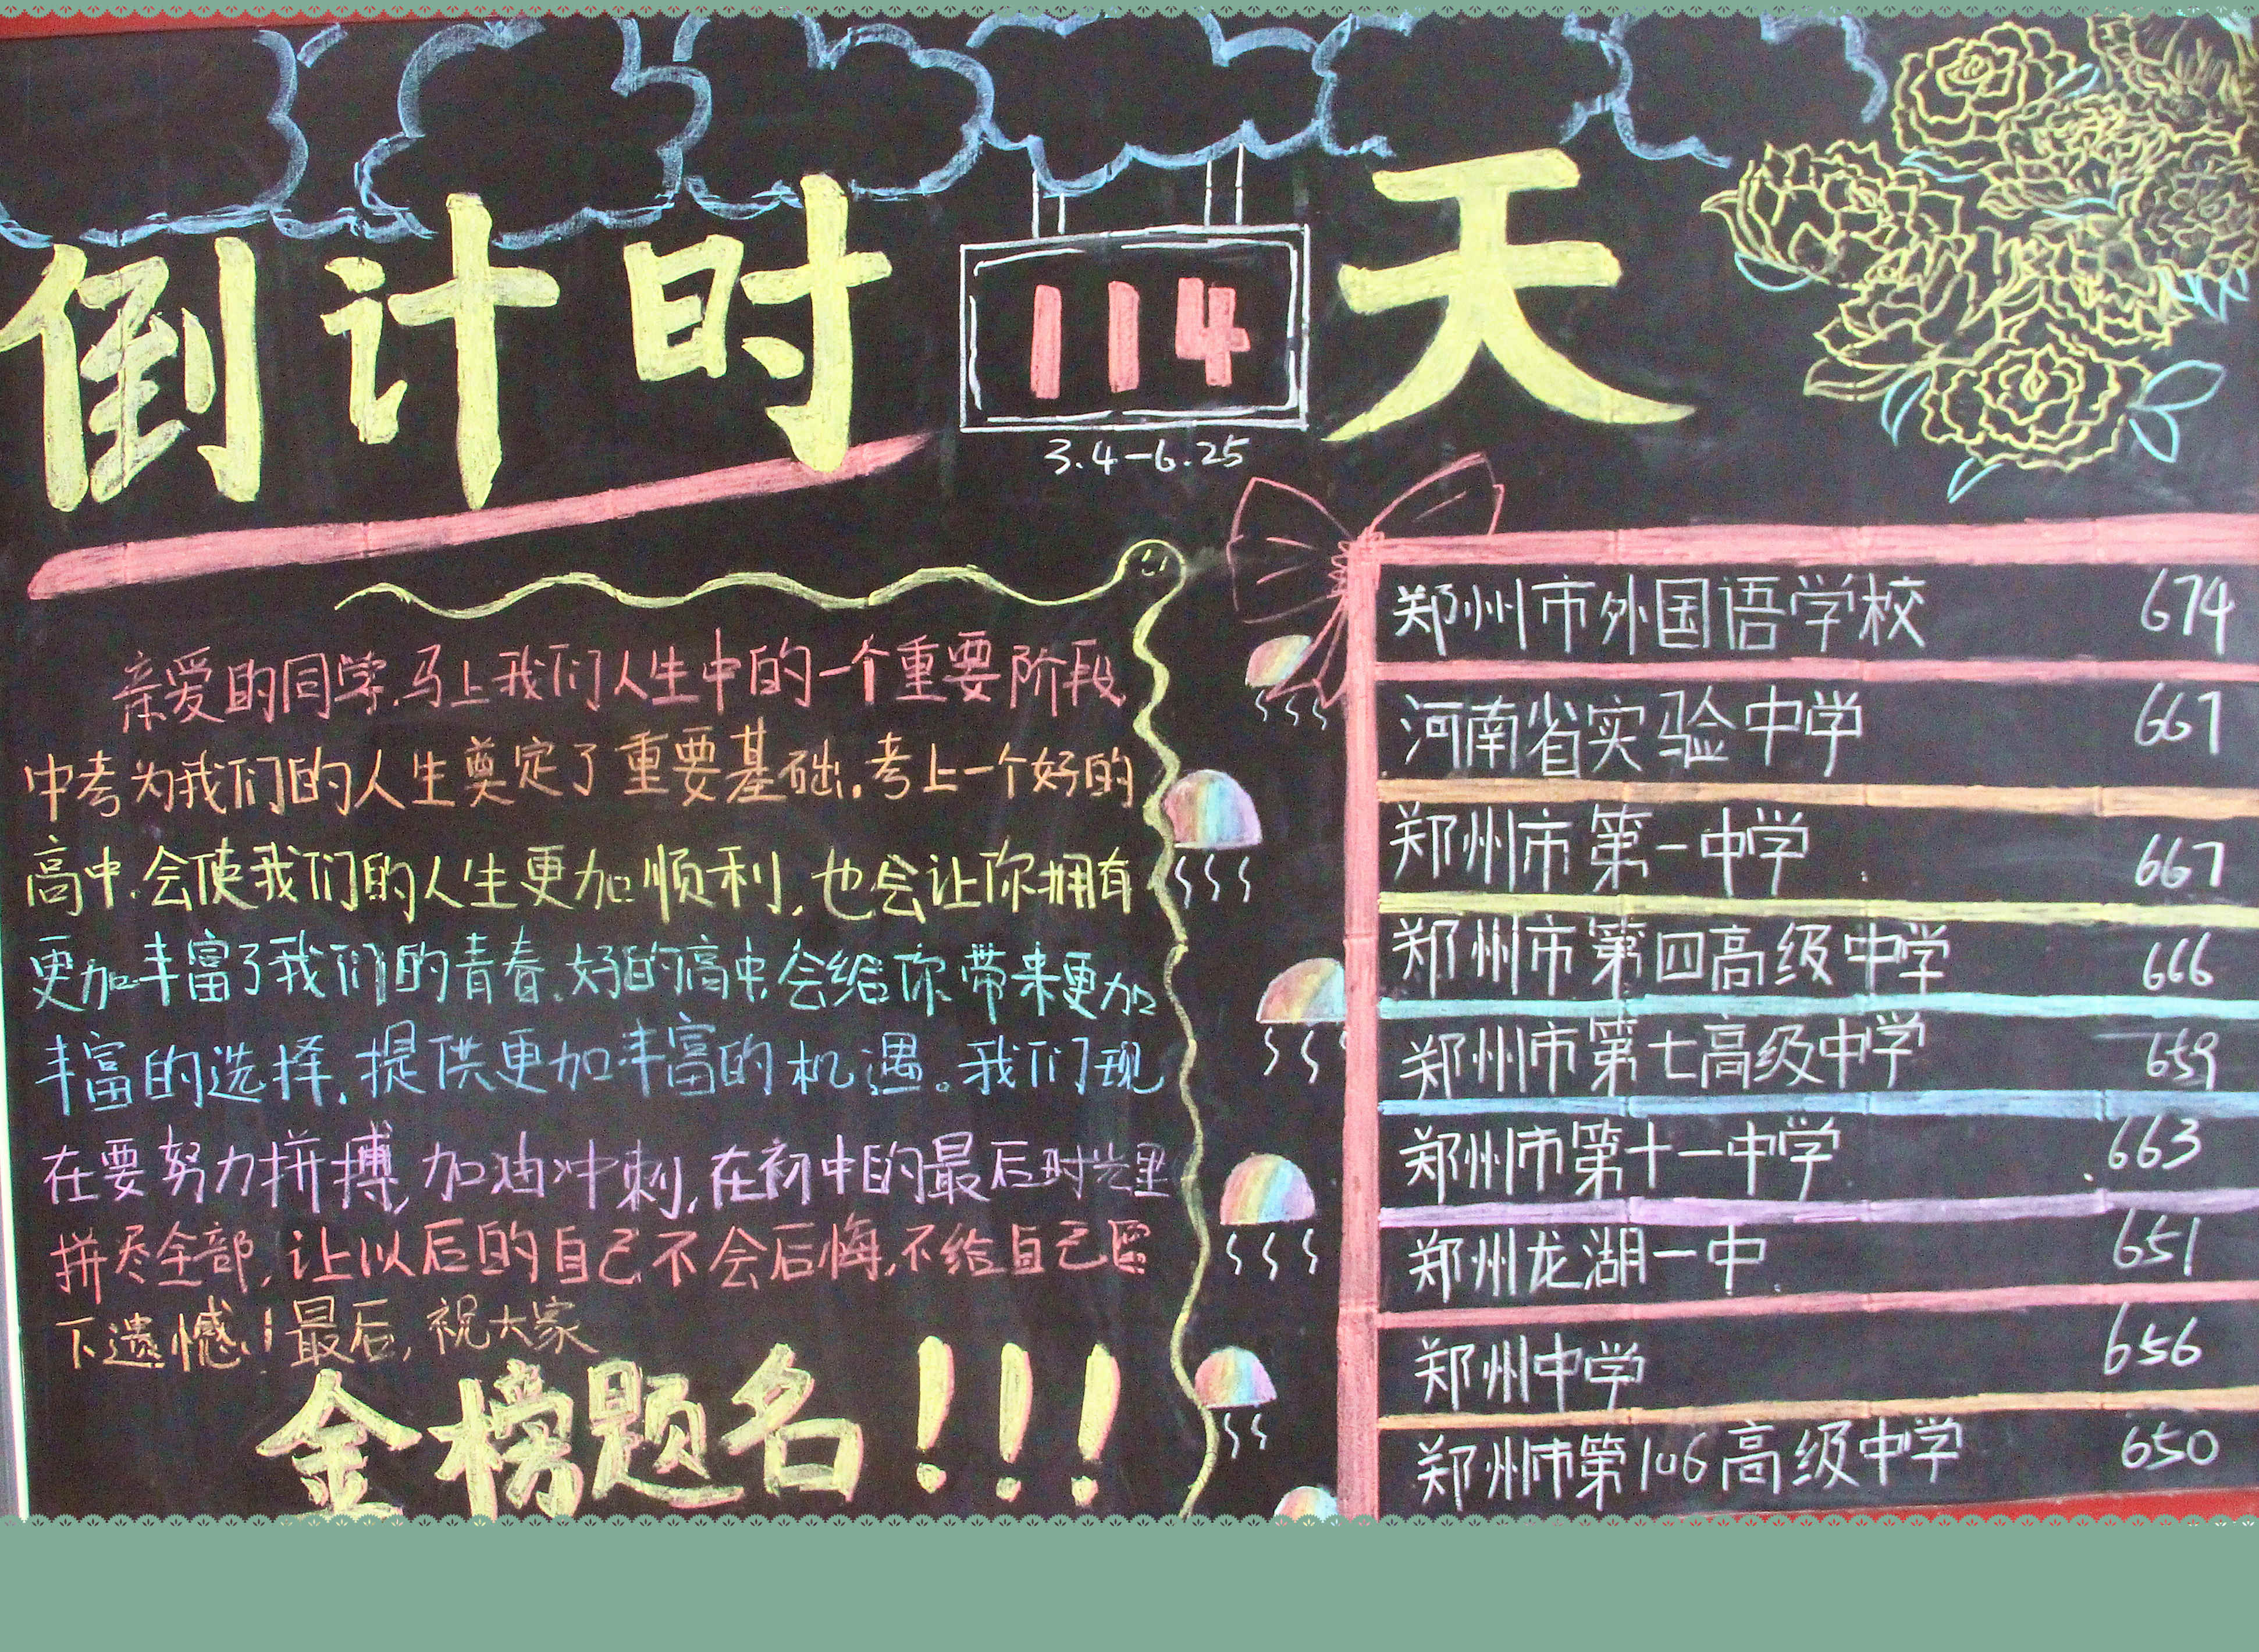 倒计时 114 天
3.4-6.25
亲爱的同学,马上我们人生中的一个重要阶段
中考为我们的人生奠定了重要基础。考上一个好的
高中,会使我们的人生更加顺利,也会让你拥有
更加丰富了我们的青春,好的高中,会给你带来更加
丰富的选择,提供更加丰富的机遇。我们现
在要努力拼搏,加油冲刺,在初中的最后时光里
拼尽全部,让以后的自己不会后悔,不给自己留
下遗憾!最后,祝大家
金榜题名!!!
郑州市外国语学校 674
河南省实验中学 667
郑州市第一中学 667
郑州市第四高级中学 666
郑州市第七高级中学 659
郑州市第十一中学 663
郑州龙湖一中 651
郑州中学 656
郑州市第106高级中学 650